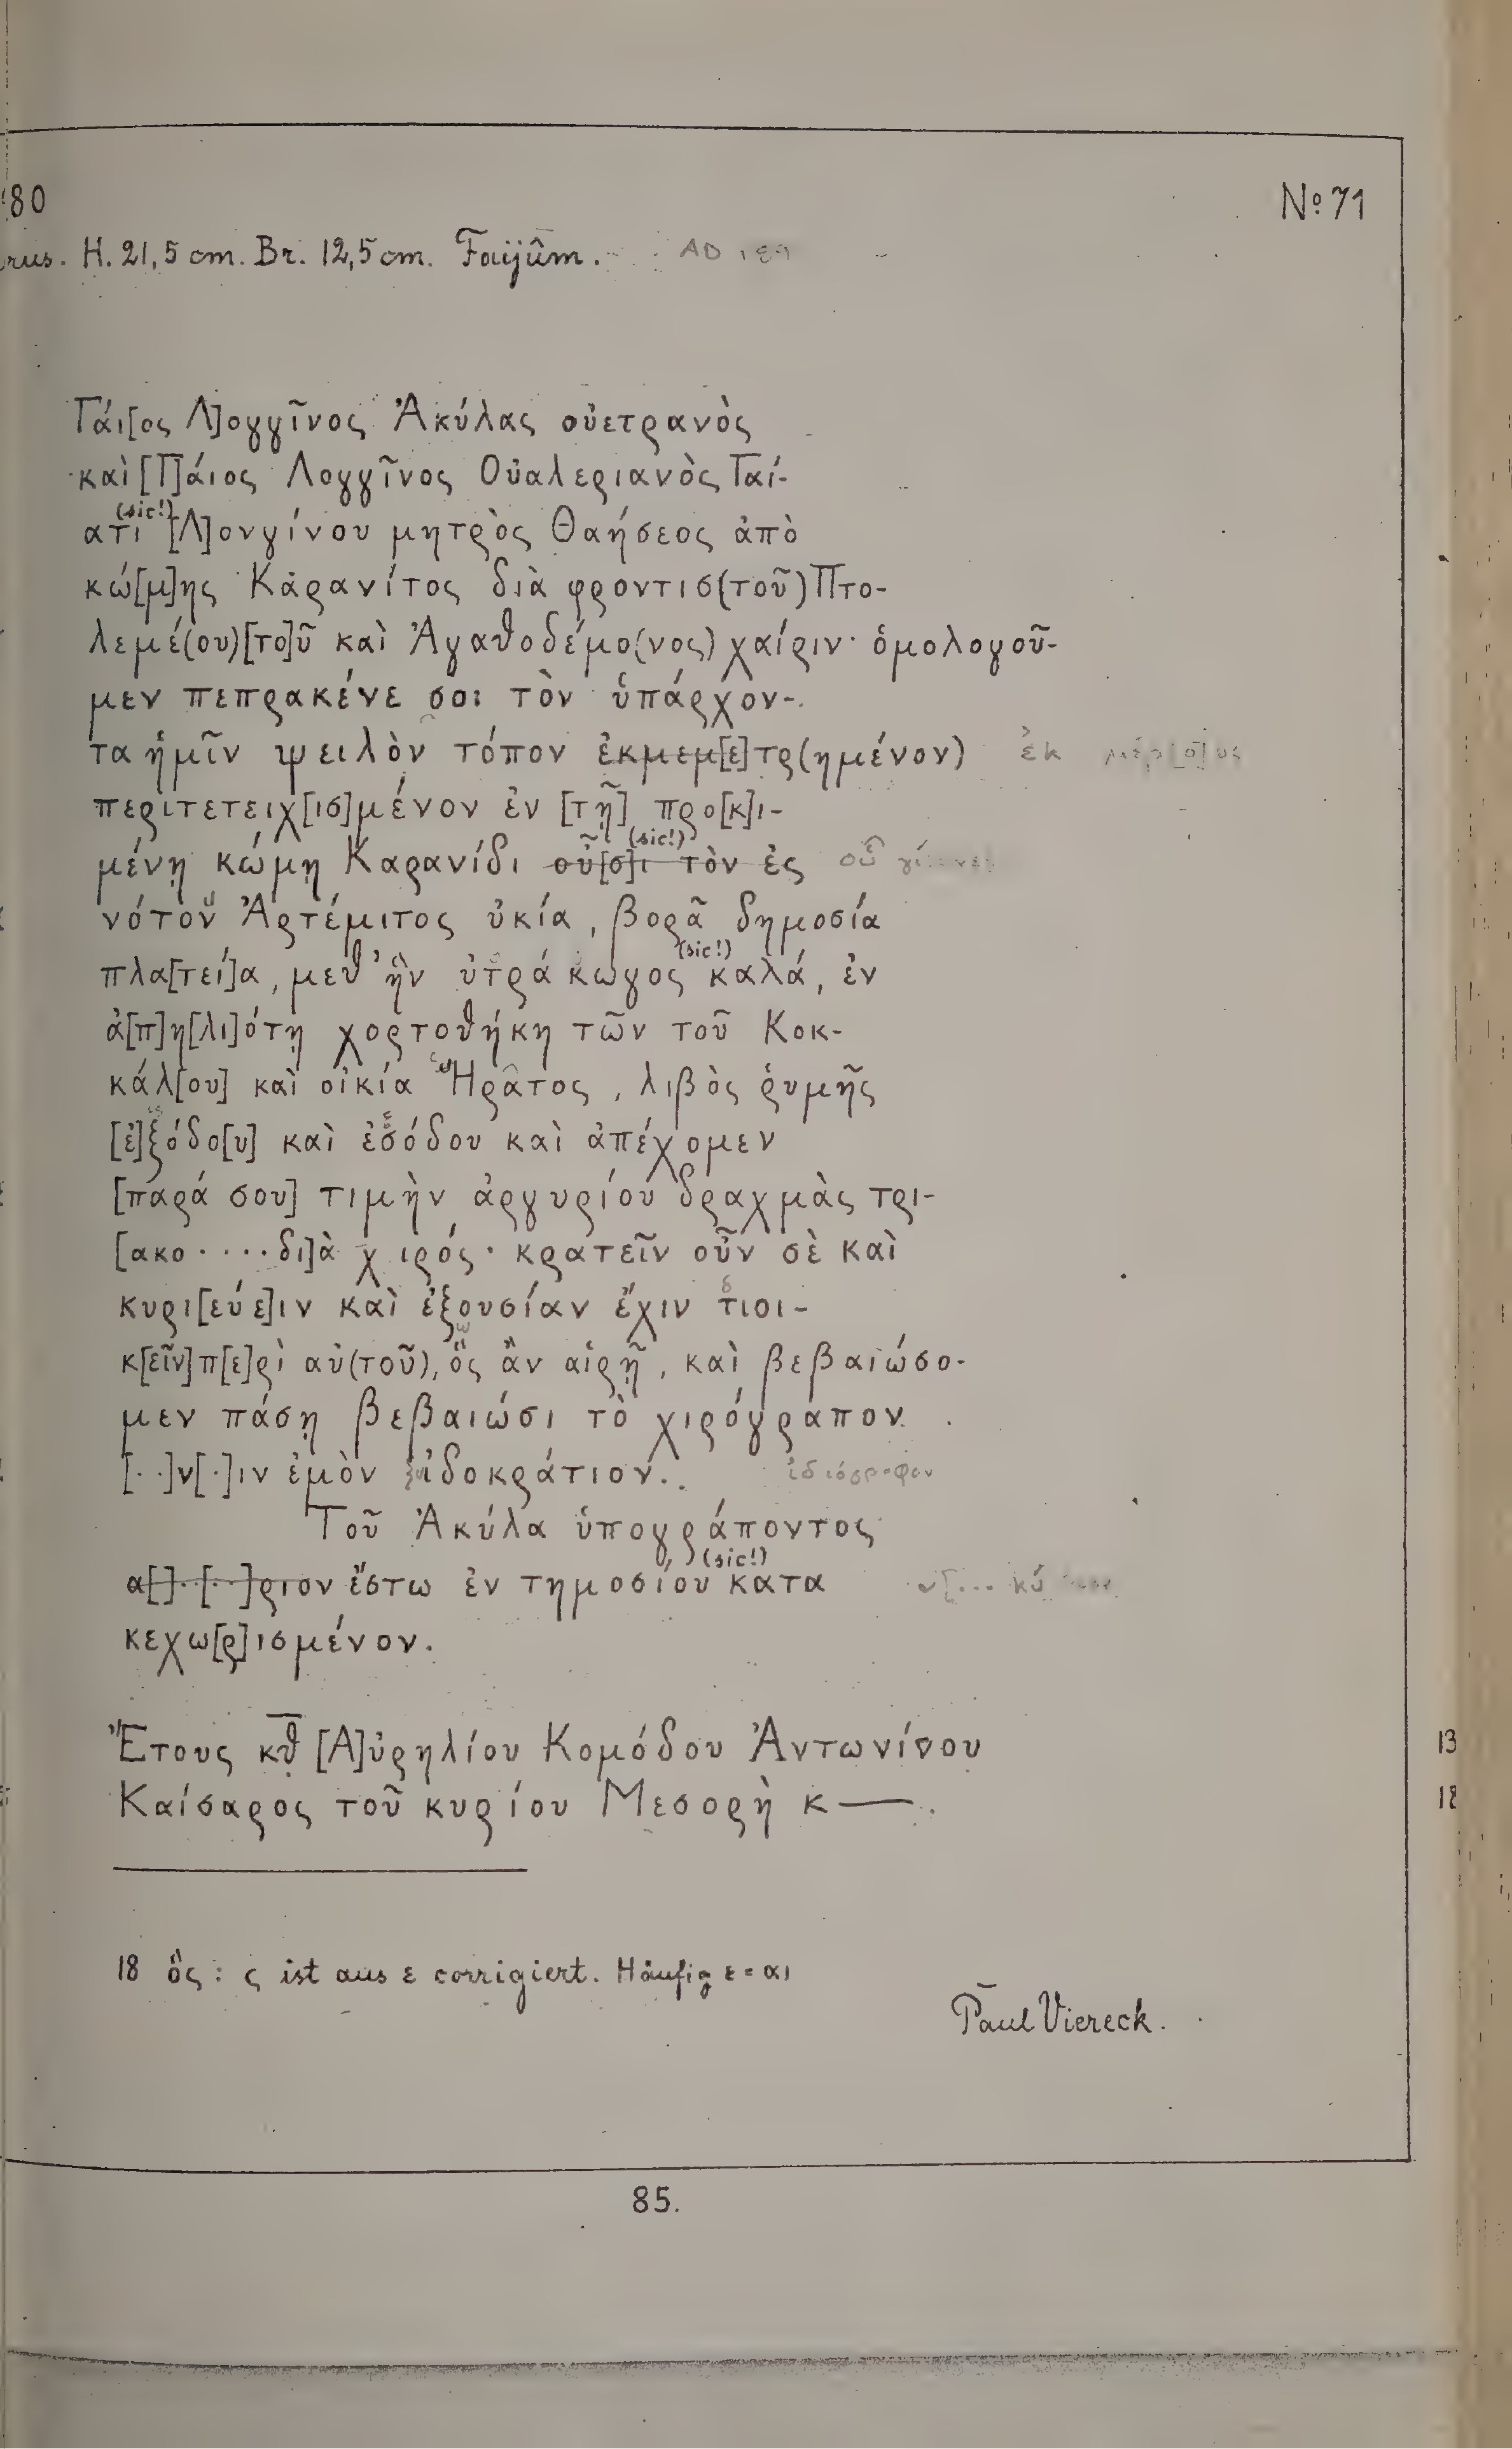 80
No 71
rus. H. 21,5 cm. Br. 12,5 cm. Faijûm. AD 189
Γάι[ος Λ]ογγῖνος Ἀκύλας οὐετρανὸς
καὶ [Γ]άιος Λογγῖνος Οὐαλεριανὸς Γαί-
ατι (sic!) [Λ]ονγίνου μητρὸς Θαήσεος ἀπὸ
κώ[μ]ης Καρανίτος διὰ φροντισ(τοῦ) Πτο-
λεμέ(ου) [το]ῦ καὶ Ἀγαθοδέμο(νος) χαίριν· ὁμολογοῦ-
μεν πεπρακένε σοι τὸν ὑπάρχον-
τα ἡμῖν ψειλὸν τόπον ἐκμεμ[ε]τρ(ημένον) ἐκ μέρ[ο]υς
περιτετειχ[ισ]μένον ἐν [τῇ] προ[κ]ι-
μένῃ κώμῃ Καρανίδι οὗ[σ]ι (sic!) τὸν ἐς οὗ
νότον Ἀρτέμιτος ὐκία, βορᾶ δημοσία
πλα[τεί]α, μεθ' ἣν ὑτρά κωγος (sic!) καλά, ἐν
ἀ[π]η[λι]ότῃ χορτοθήκη τῶν τοῦ Κοκ-
κάλ[ου] καὶ οἰκία Ἡρᾶτος, λιβὸς ῥυμῆς
[ἐ]ξόδο[υ] καὶ ἐσόδου καὶ ἀπέχομεν
[παρά σου] τιμὴν ἀργυρίου δραχμὰς τρι-
[ακο····δι]ὰ χιρός· κρατεῖν οὖν σὲ καὶ
κυρι[εύε]ιν καὶ ἐξουσίαν ἔχιν τιοι-
κ[εῖν] π[ε]ρὶ αὐ(τοῦ), ὃς ἂν αἱρῇ, καὶ βεβαιώσο-
μεν πάσῃ βεβαιώσι τὸ χιρόγραπον
[··]ν[·]ιν ἐμὸν ἰδοκράτιον. ἰδιόγραφον
Τοῦ Ἀκύλα ὑπογράποντος
α[]·[··]ριον ἔστω ἐν τημοσίου (sic!) κατα
κεχω[ρ]ισμένον.
Ἔτους κθ [Α]ὐρηλίου Κομόδου Ἀντωνίνου
13
Καίσαρος τοῦ κυρίου Μεσορὴ κ—.
18
18 ὃς: ς ist aus ε corrigiert. Häufig ε = αι
Paul Viereck.
85.